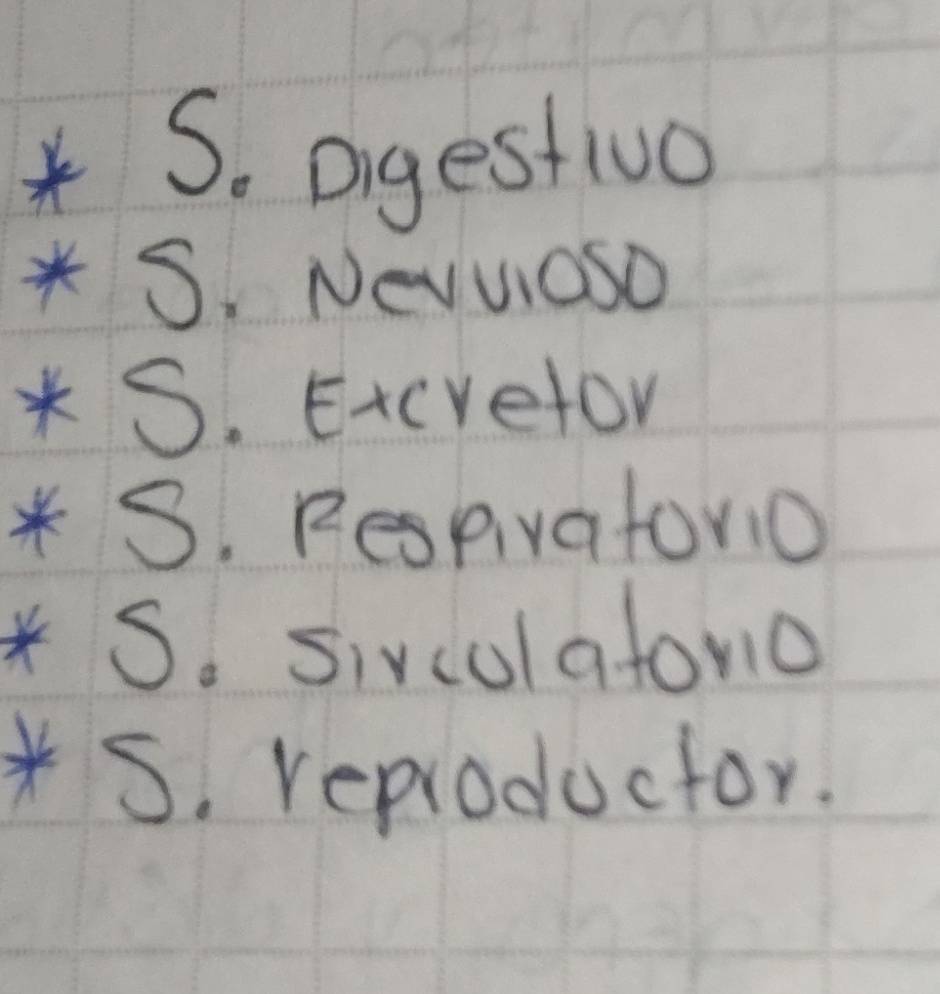 * S. Digestivo
* S. Nervioso
* S. Excretor
* S. Respiratorio
* S. Sirculatorio
* S. reproductor.